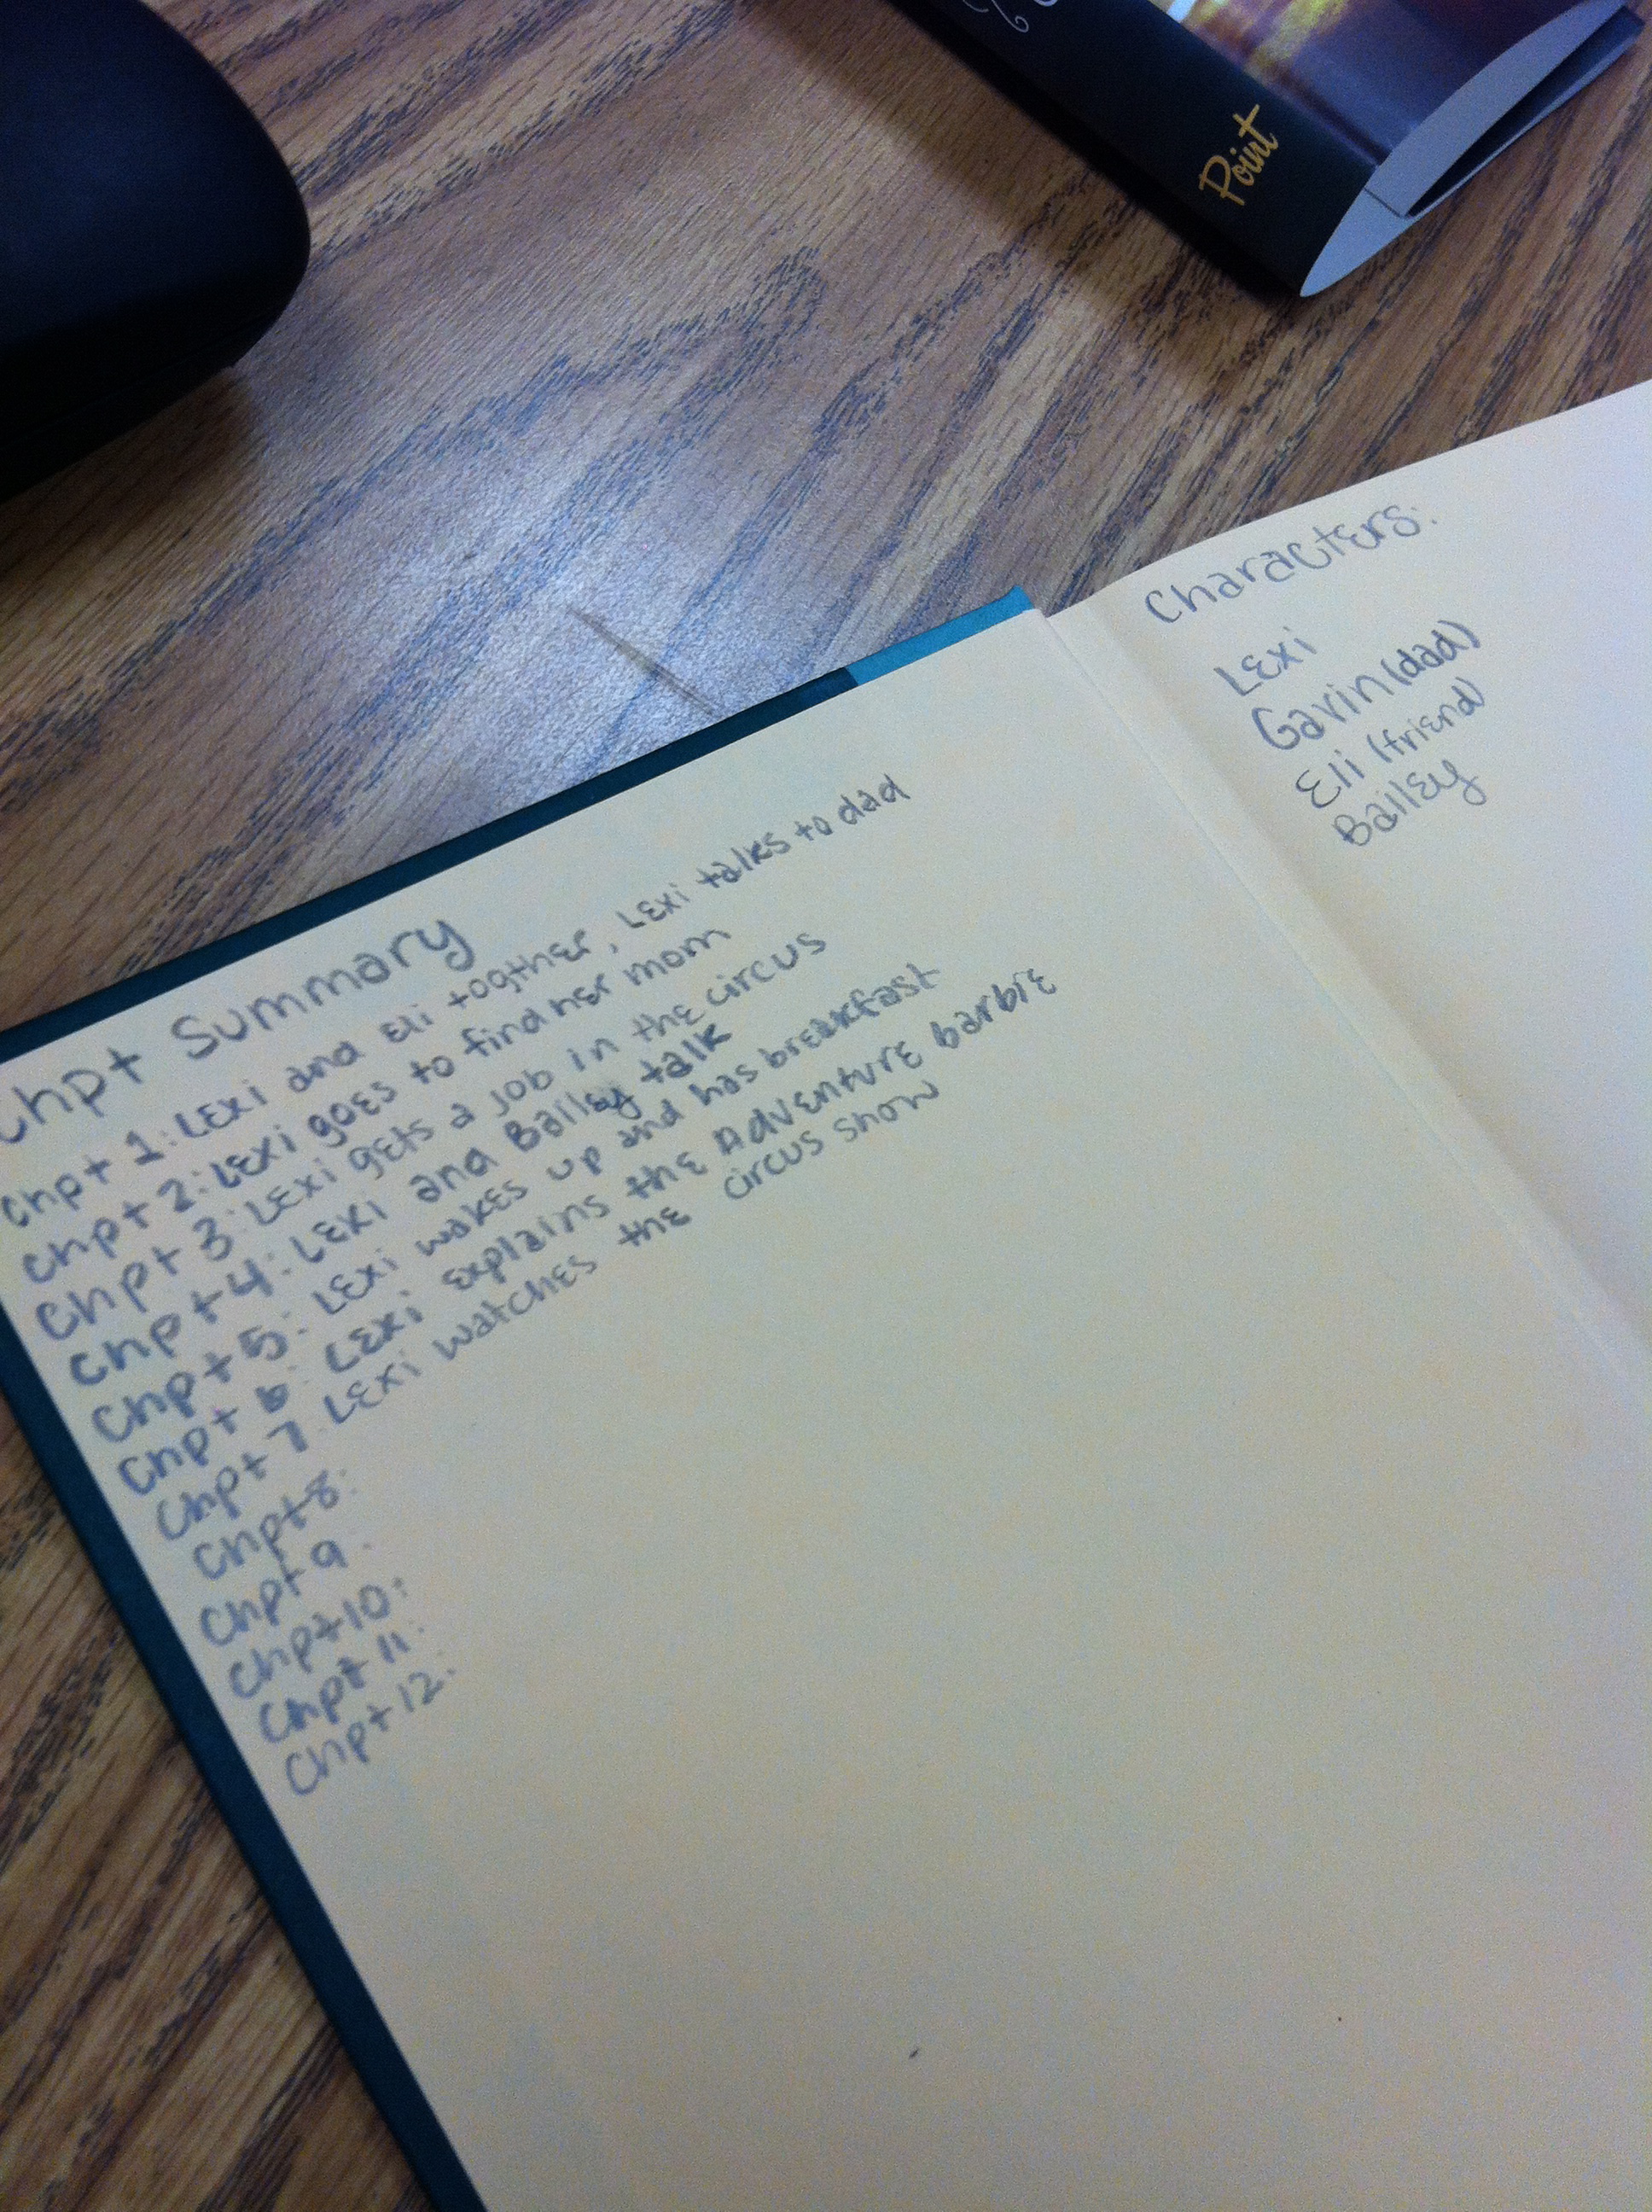 Point
Chpt Summary
Chpt 1: Lexi and Eli togther, Lexi talks to dad
Chpt 2: Lexi goes to find her mom
Chpt 3: Lexi gets a job in the circus
Chpt 4: Lexi and Bailey talk
Chpt 5: Lexi wakes up and has breakfast
Chpt 6: Lexi explains the Adventure barbie
Chpt 7: Lexi watches the circus show
Chpt 8:
Chpt 9:
Chpt 10:
Chpt 11:
Chpt 12:
Characters:
Lexi
Gavin (dad)
Eli (friend)
Bailey